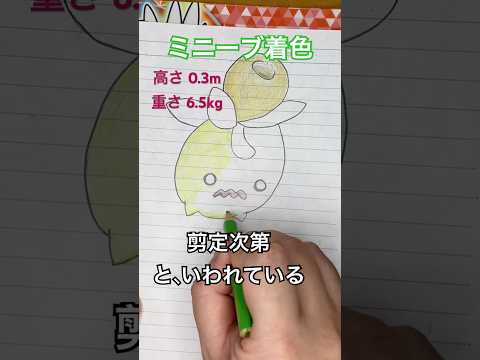 ミニーブ着色
高さ 0.3m
重さ 6.5kg
剪定次第
と､いわれている